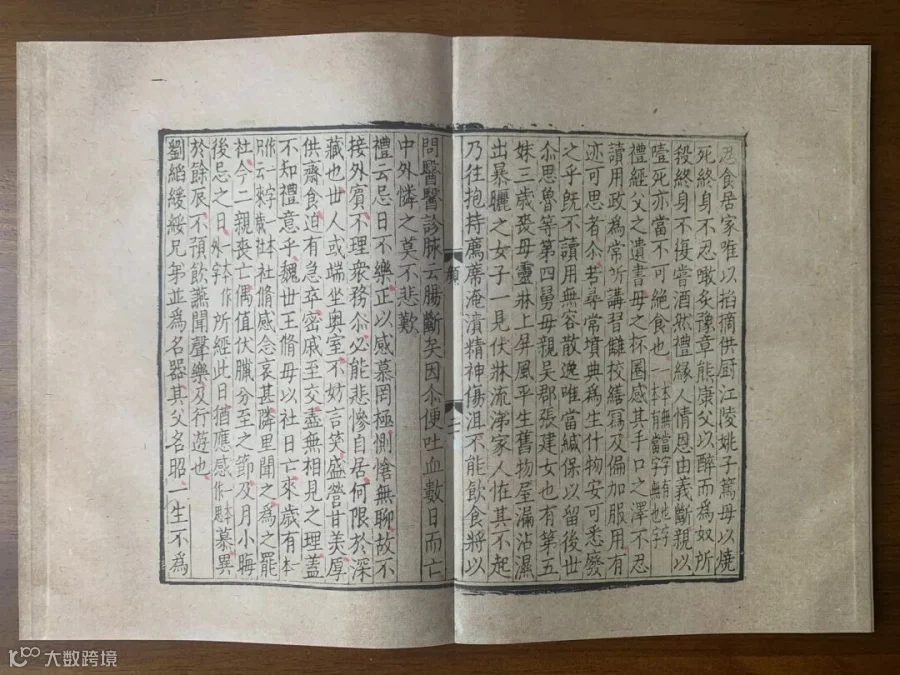 忍食居家唯以掐摘供厨江陵姚子篤母以燒
死終身不忍噉炙豫章熊康父以醉而為奴所
殺終身不復嘗酒然禮緣人情恩由義斷親以
噎死亦當不可絕食也一本無當字有也字一本有當字無也字
禮經父之遺書母之杯圈感其手口之澤不忍
讀用政為常所講習讎校繕寫及偏加服用有
迹可思者尒若尋常墳典為生什物安可悉廢
之乎旣不讀用無容散逸唯當緘保以留後世
尒思魯等第四舅母親吳郡張建女也有第五
妹三歲喪母靈牀上屏風平生舊物屋漏沾濕
出暴曬之女子一見伏牀流涕家人恠其不起
乃往抱持薦席淹漬精神傷沮不能飲食將以
二
問醫醫診脉云腸斷矣因尒便吐血數日而亡
中外憐之莫不悲歎
禮云忌日不樂正以感慕罔極惻愴無聊故不
接外賓不理衆務尒必能悲慘自居何限於深
藏也世人或端坐奥室不妨言笑盛營甘美厚
供齋食迫有急卒密戚至交盡無相見之理蓋
不知禮意乎魏世王脩母以社日亡來歲有一本
一字一本云來歲社社脩感念哀甚隣里聞之為之罷
社今二親喪亡偶值伏臘分至之節及月小晦
後忌之日一本作外字所經此日猶應感一本作思慕異
於餘辰不預飲燕聞聲樂及行遊也
劉縚緩綏兄弟並為名器其父名昭一生不為
大数跨境